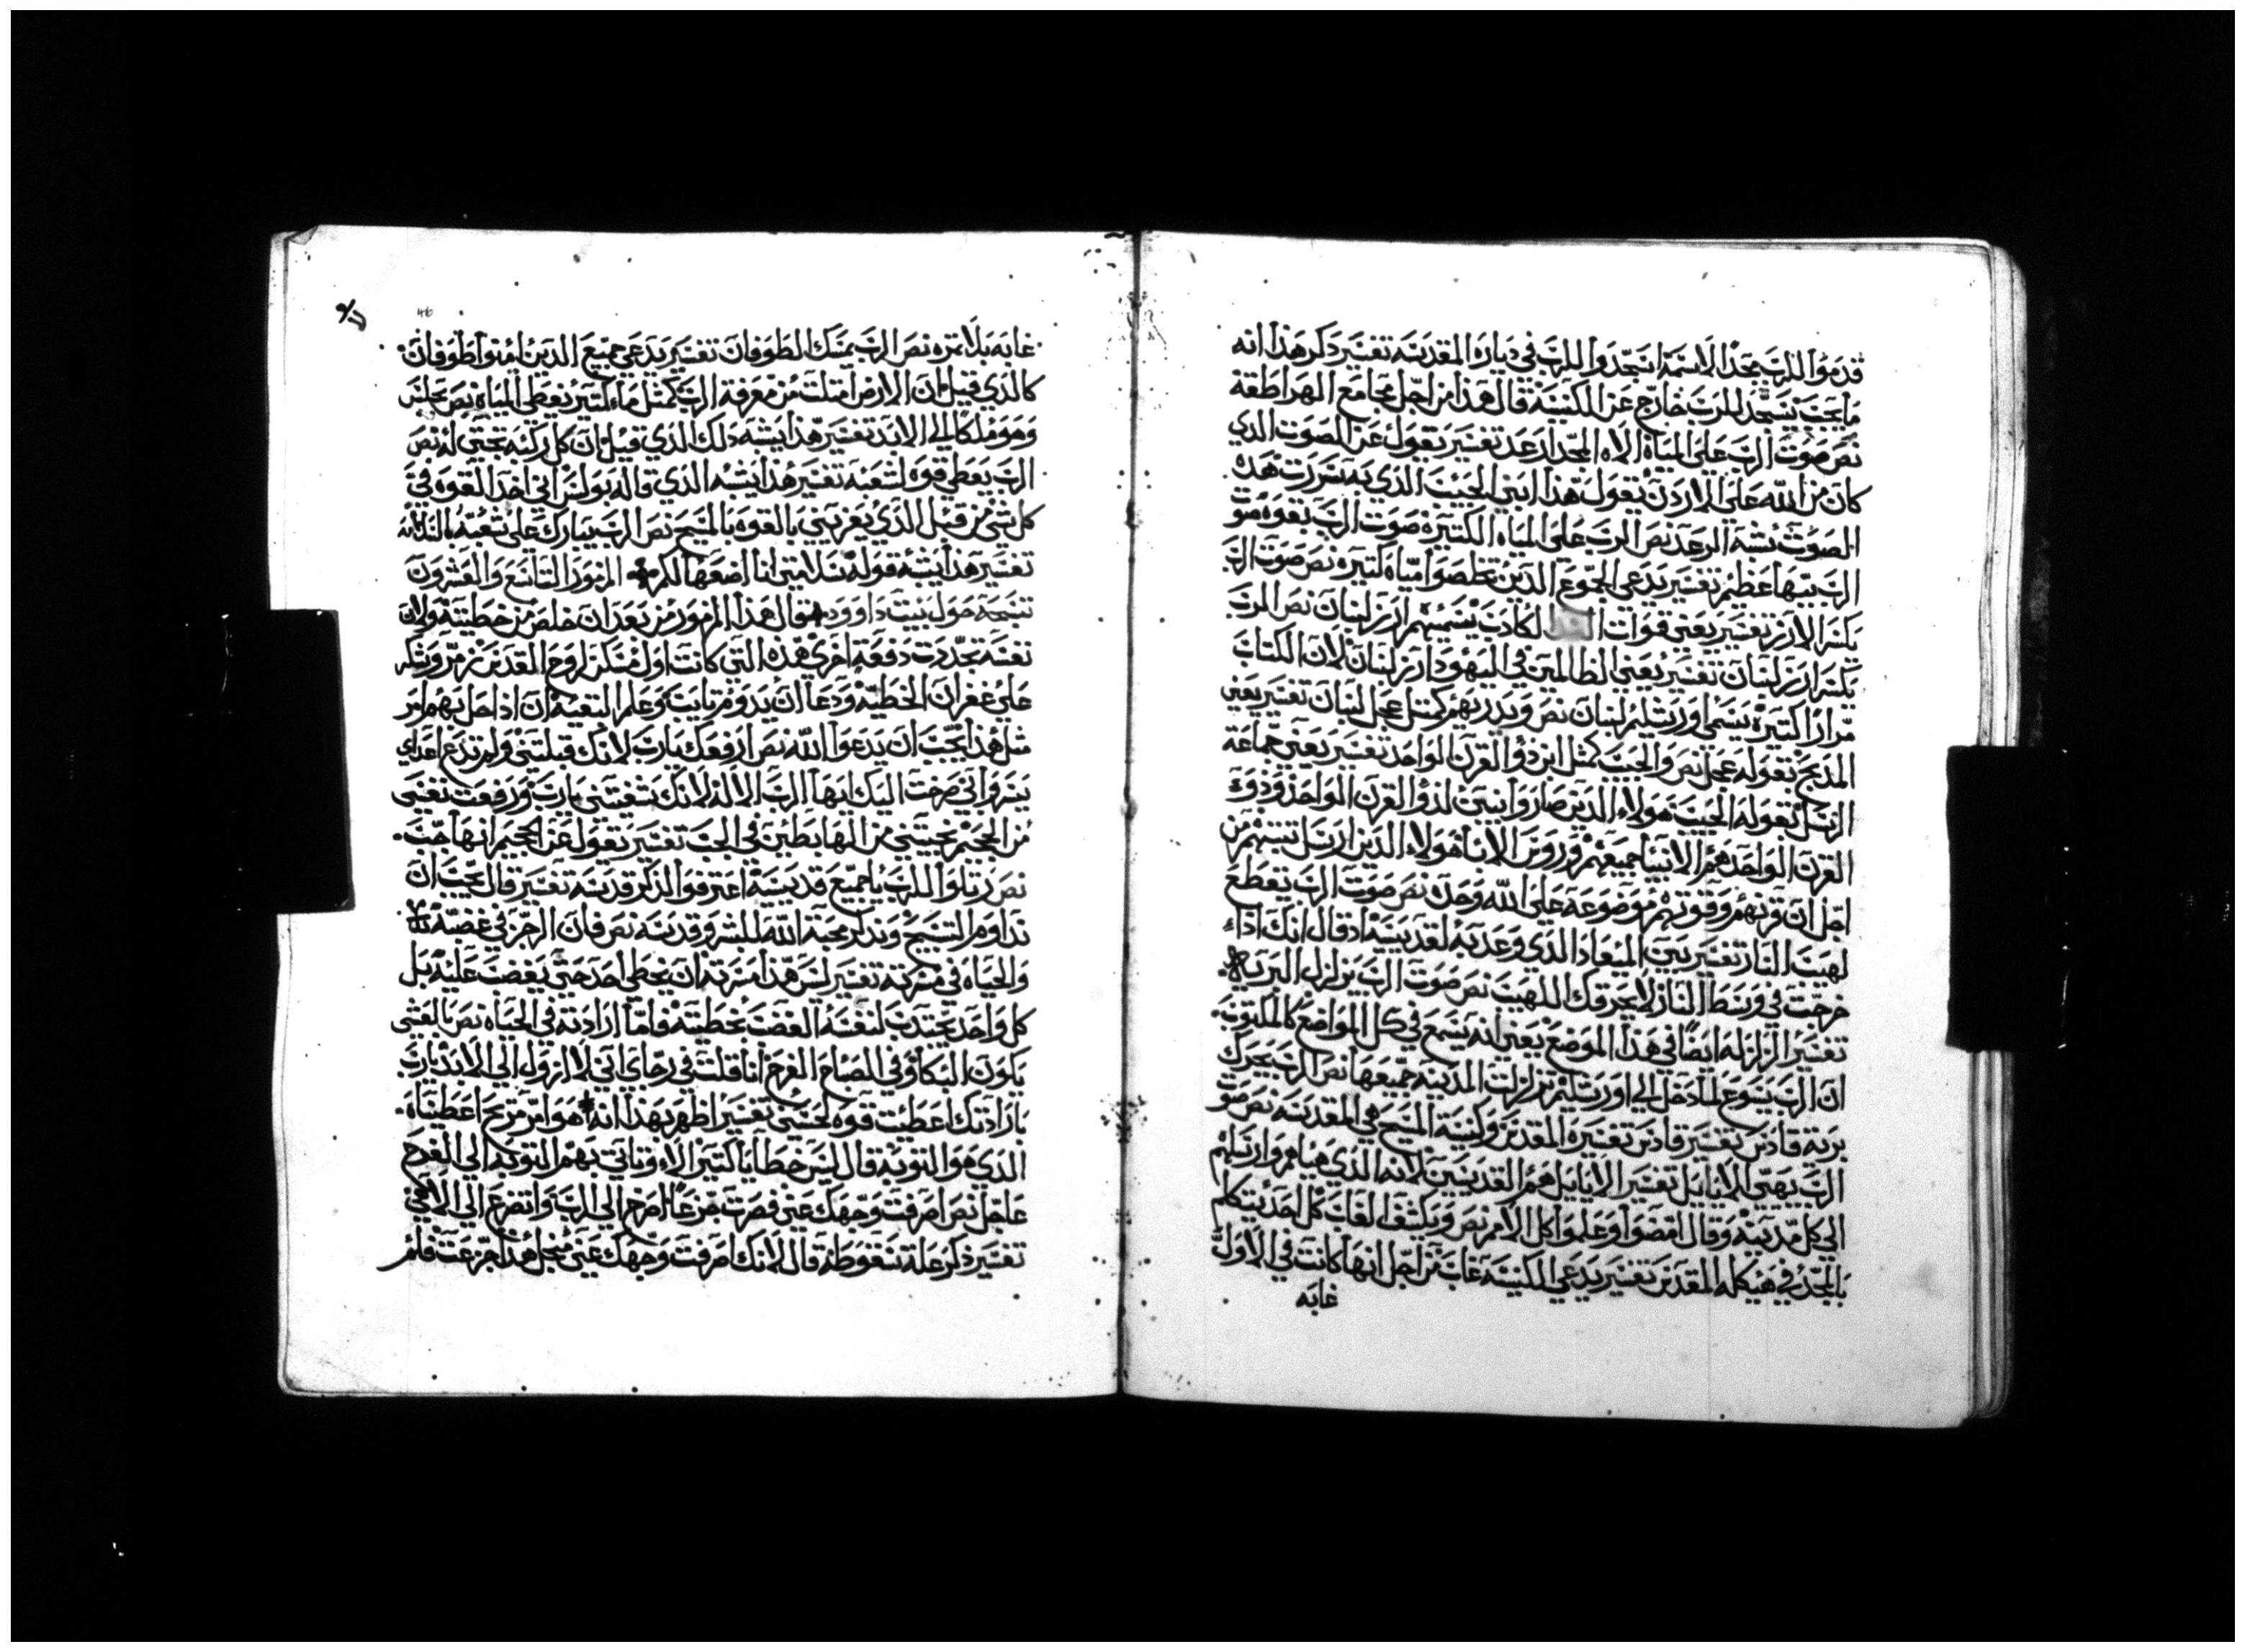 قدموا للرب مجدا لاسمه اسجدوا للرب في دياره المقدسه تفسير ذكر هذا انه
ما يجب يسجد للرب خارج عن الكنيسه قال هذا من اجل مجامع الهراطقه
نص صوت الرب على المياه الاه المجد ارعد تفسير يقول عن الصوت الدي
كان من الله على الاردن يقول هذا ابني الحبيب الدي به سررت هده
الصوت يشبه الرعد نص الرب على المياه الكتيره صوت الرب بقوه صوت
الرب ببها عظيم تفسير يدعي الجموع الدين تخلصوا مياه كتيره نص صوت الرب
يكسر الارز تفسير يعني قوات الكادب يسميهم ارز لبنان نص الرب
يكسر ارز لبنان تفسير يعني الظالمين في اليهود ارز لبنان لان الكتاب
مرارا كتيره يسمي اورشليم لبنان نص ويدريهم كمتل عجل لبنان تفسير يعني
المدبح بقوله عجل نص والحبيب كمتل ابن دو القرن الواحد تفسير يعني جماعة
الرسل بقوله الحبيب هولاء الدين صاروا بنين لدو القرن الواحد ودوي
القرن الواحد هم الانبيا جميعهم وروس الابا هولاء الدين ارسل تسبتهم من
اجل ان قرنهم وقوتهم موضوعه على الله وحده نص صوت الرب يقطع
لهيب النار تفسير يبين الميعاد الدي وعد به لقديسيه اد قال انك اداء
خرجت في وسط النار لا يحرقك اللهيب نص صوت الرب يزلزل البريه
تفسير الزلزله ايضا في هذا الموضع يعني انه يسمع في كل المواضع كالمكتوب
ان الرب يسوع لما دخل الى اورشليم تزلزلت المدينه جميعها نص الرب يحرك
برية قادس تفسير قادس تفسيره المقدس وكنيسة المسيح هي المقدسه نص صوت
الرب يهيي الايايل تفسير الايايل هم القديسين لانه الدي هياهم وارسلهم
الى كل مدينه وقال امضوا وعلموا كل الامم نص ويكشف الغاب كل احد يتكلم
بالمجد في هيكله المقدس تفسير يدعي الكنيسه غاب من اجل انها كانت في الاول
غابه
46
غابه بلا تمره نص الرب يمسك الطوفان تفسير يدعي جميع الدين امنوا طوفان
كالدي قيل ان الارض امتلت من معرفة الرب كمتل ماء كتير يغطي المياه نص يجلس
وهو ملكا الى الابد تفسير هذا يشبه دلك الدي قيل ان كل ركبه تجتي له نص
الرب يعطي قوه لشعبه تفسير هذا يشبه الدي قاله بولس اني اخد القوه في
كل شي من قبل الذي يعزيني بالقوه بالمسيح نص الرب يبارك على شعبه بالسلامه
تفسير هذا يشبه قوله سلامتي انا اضعها لكم المزمور التاسع والعشرون
تسبحه حول بيت داوود قال هذا المزمور من بعد ان خلص من خطيته ولان
نفسه تجددت دفعة اخري هذه التي كانت اول مسكن لروح القدس زمر وشكر
على غفران الخطيه ودعا ان يدوم تابت وعلم البقيه ان ادا حل بهم امر
متل هذا يجب ان يدعوا الله نص ارفعك يارب لانك قبلتني ولم تدع اعداي
يسروا بي صرخت اليك ايها الرب الاله لانك شفيتني يارب ورفعت نفسي
من الجحيم نجيتني من الهابطين في الجب تفسير يقول عن الجحيم انها جب
نص رتلوا للرب يا جميع قديسيه اعترفوا لذكر قدسه تفسير قال يجب ان
نداوم التسبيح ونذكر محبة الله للبشر وقدسه نص فان الرجز في غضبه
والحياه في مسرته تفسير ليس هذا مسرته ان يخطي احد حتي يغضب عليه بل
كل واحد يجتدب لنفسه الغضب بخطيته فاما ارادته في الحياه نص بالعشي
يكون البكا وفي الصباح الفرح انا قلت في رجاي اني لا ازول الى الابد يارب
بارادتك اعطيت قوه لحسني تفسير اظهر بهذا انه هو امر مزيج اعطيناه
الدي هو التوبه قال ليس خطايا كتير الا وتاتي بهم التوبه الى الفرح
عاجل نص اصرفت وجهك عني فصرت جزعا اصرخ الى الرب واتضرع الى الاهي
تفسير ذكر علة سقوطه قال لانك اصرفت وجهك عني من اجل هذا جزعت فلم